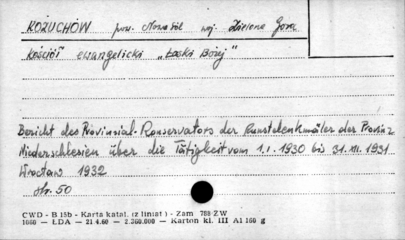 KOŻUCHÓW pow. Nowa Sól woj. Zielona Góra
Kościół ewangelicki „Łaski Bożej"
Bericht des Provinzial-Konservators der Kunstdenkmäler der Provinz
Niederschlesien über die Tätigkeit vom 1.I.1930 bis 31.III.1931
Wrocław 1932
str. 50
CWD - B 15b - Karta katal. (z liniat.) - Zam 788 ZW
1660 — ŁDA — 21.4.60 — 2.360.000 — Karton kl. III A1 160 g